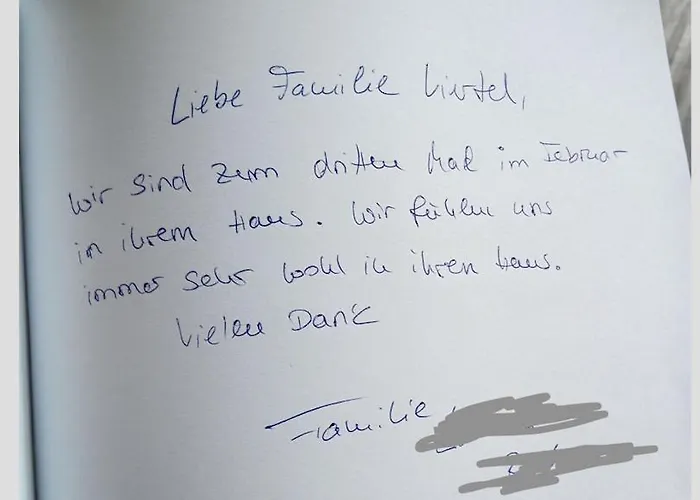 Liebe Familie Viertel,
wir sind zum dritten Mal im Februar
in ihrem Haus. Wir fühlen uns
immer sehr wohl in ihren Haus.
Vielen Dank
Familie